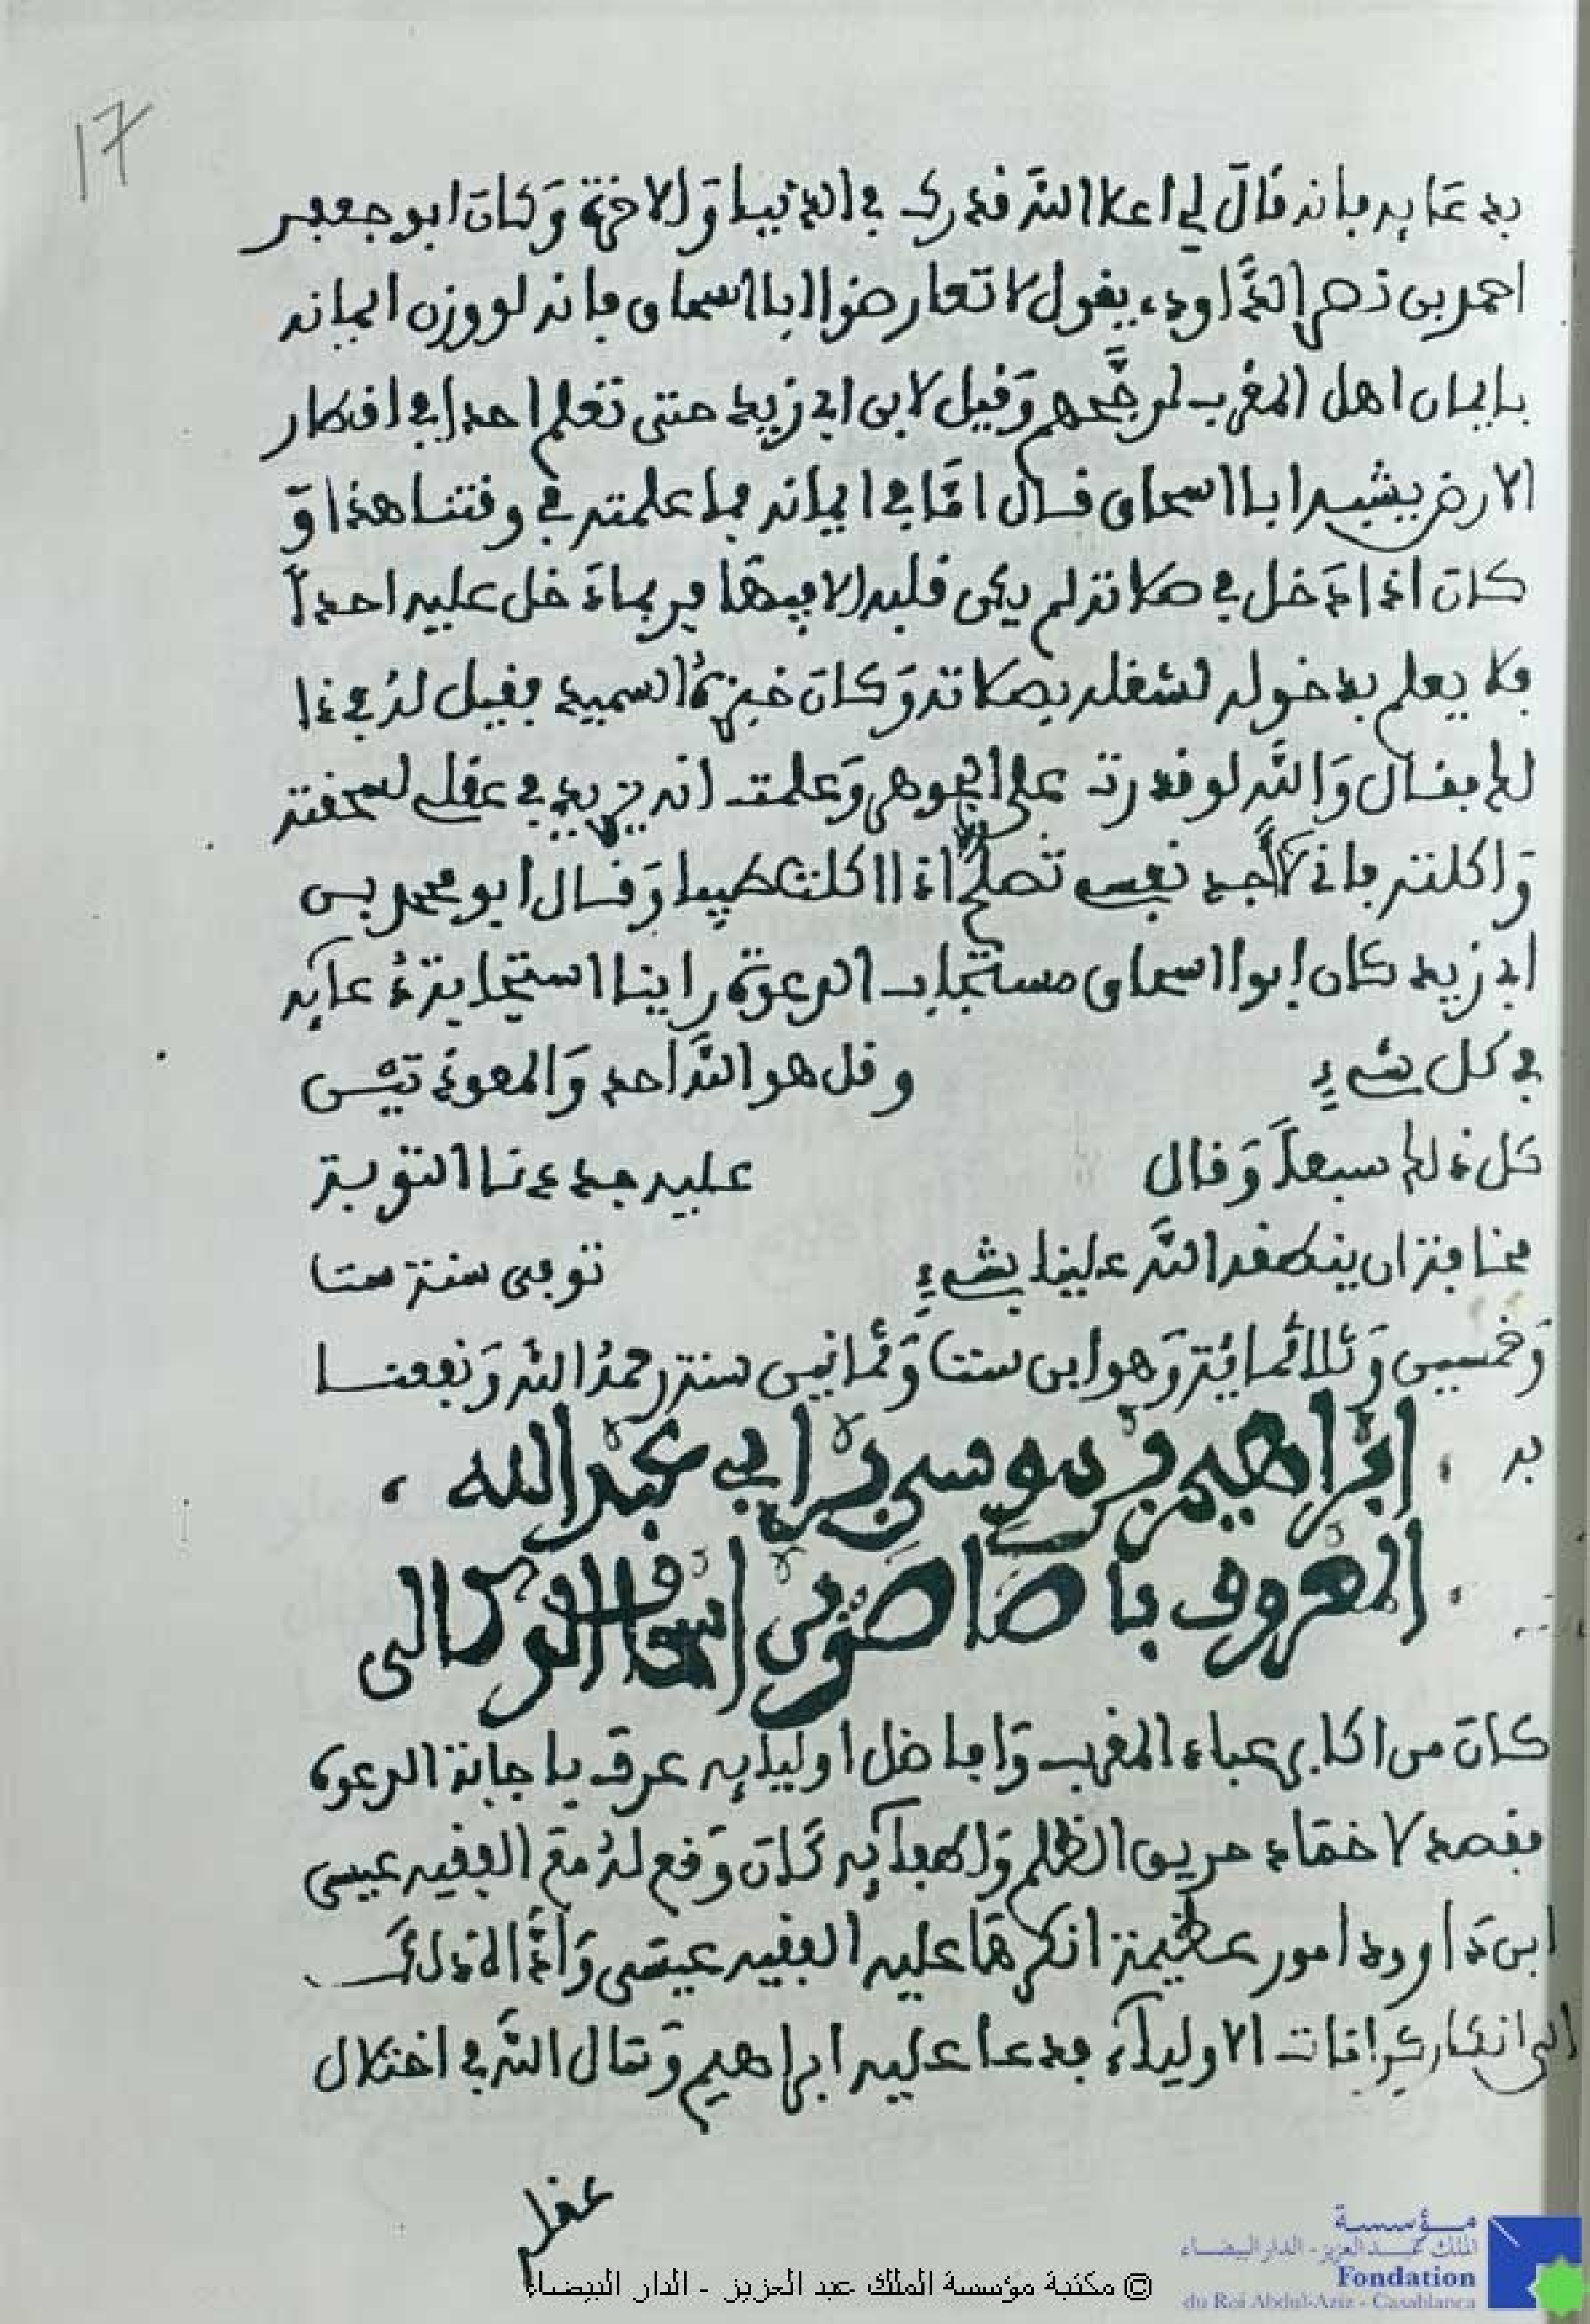 17
بدعايه فانه قال لي اعلا الله قدرك في الدنيا وَالاخرة وَكانَ ابو جعفر
احمد بن نصر الدَّاودي يقول لا تعارضوا ابا اسحاق فانه لو وزن ايمانه
بايمان اهل المغرب لرجَّحهم وَقيل لابن ابي زيد حتى تعلم احدا في اقطار
الارض يشبه ابا اسحاق قال امَّا في ايمانه فما علمته في وقتنا هذا وَ
كانَ اذا دَخل في صلاته لم يكن قلبه الا فيها فربما دَخل عليه احداً
فلا يعلم بدخوله لشغله بصلاته وَكانَ خبزهُ السميد فقيل لهُ في ذا
لك فقال وَاللَّه لو قدرت على الجوهر وَعلمت انه يزيد في عقلي لسحقته
وَاكلته فاني لا أجد نفسي تصلح اذا اكلت طيبا وَقال ابو محمد بن
ابي زيد كان ابوا اسحاق مستجاب الدعوة راينا استجابة دُعايه
في كل شيءٍ وقل هو اللَّه احد وَالمعوذَتين
كل ذلك سبعاً وَقال عليه جددنا التوبة
مخافة ان ينطقه اللَّه علينا بشيءٍ توفى سنة ستا
وَخمسين وَثلاثمائة وَهو ابن ستا وَثمانين سنة رحمهُ اللَّه وَنفعنا
به
ابراهيم بن موسى بن ابي عبد الله
المعروف با صاصو بن اسحاق الوركالى
كانَ من اكابر عباد المغرب وَافاضل اوليايه عرف باجابة الدعوة
فقصد لاخمَاد حريق الظلم وَاطفآيه كَانَ وَقع لهُ مع الفقيه عيسى
ابن دَاوود امور عظيمة انكرهَا عليه الفقيه عيسَى وَادَّا لذلك
الى انكار كرامات الاولياء فدعا عليه ابراهيم وَقال اللَّه في اختلال
عقلك
© مكتبة مؤسسة الملك عبد العزيز - الدار البيضاء
مؤسسة
الملك عبد العزيز - الدار البيضاء
Fondation
du Roi Abdul-Aziz - Casablanca